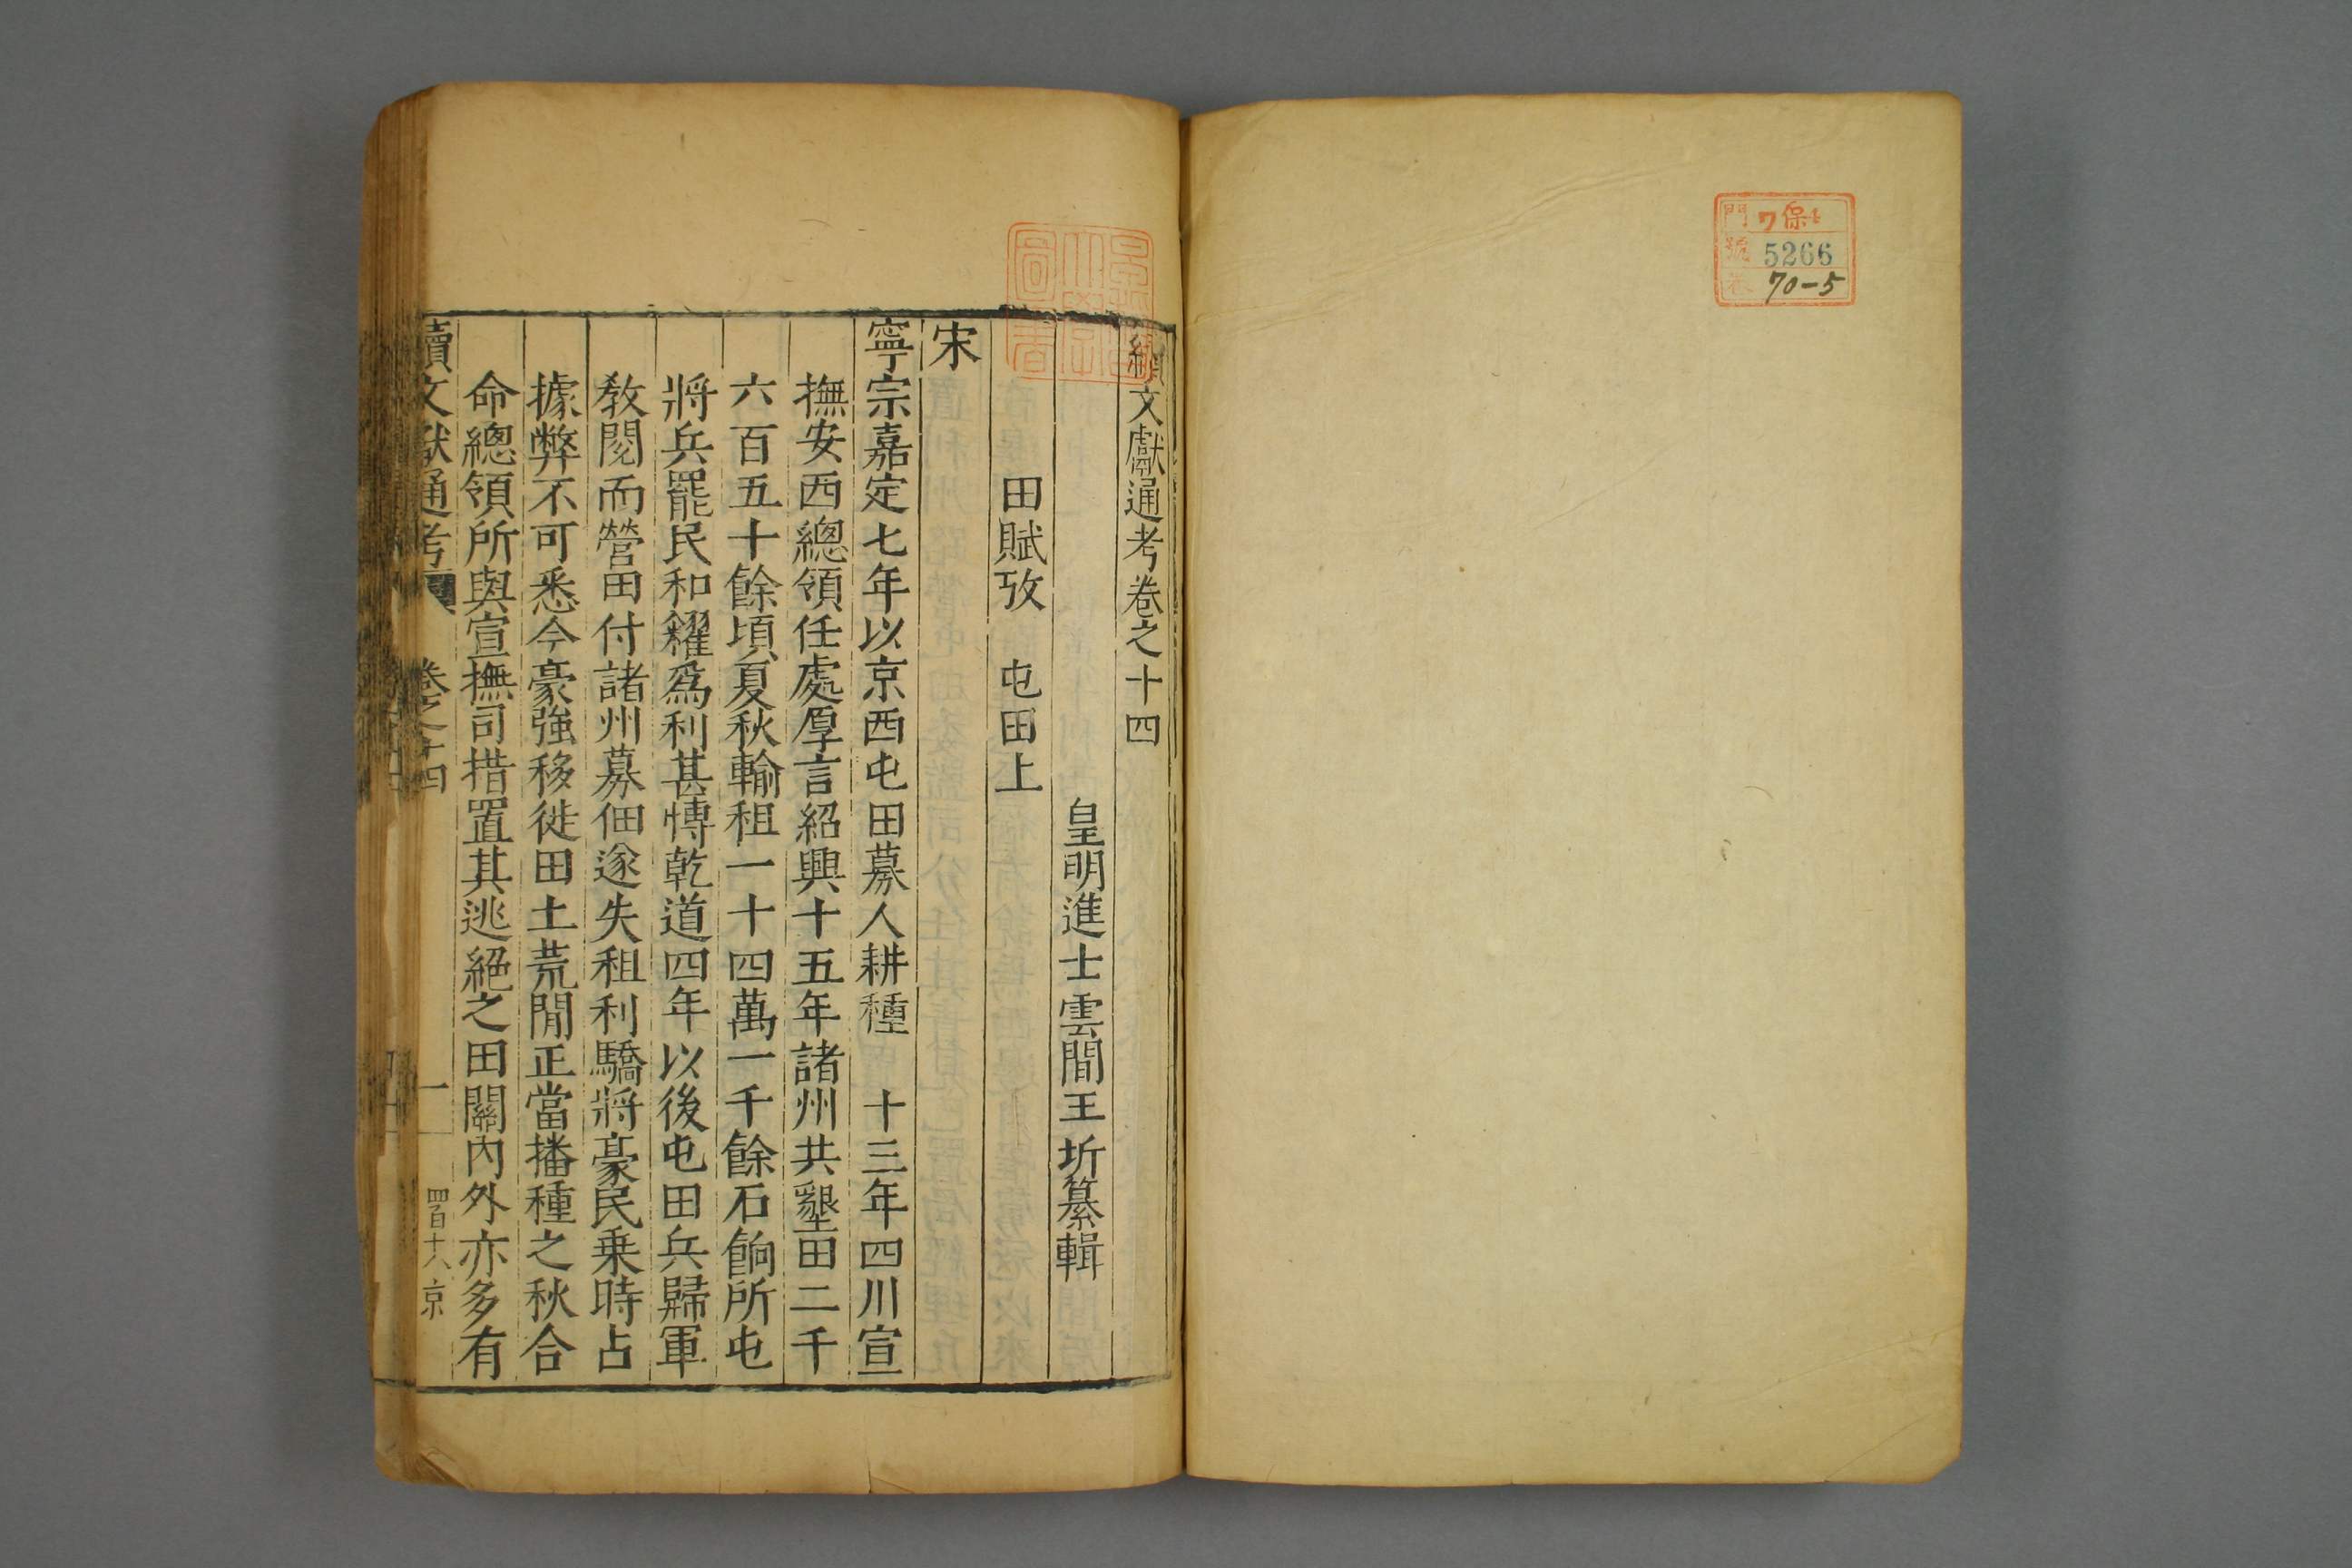 門 7保
號 5266
70-5
續文獻通考卷之十四
皇明進士雲間王圻纂輯
田賦攷 屯田上
宋
寧宗嘉定七年以京西屯田募人耕種 十三年四川宣
撫安西總領任處厚言紹興十五年諸州共墾田二千
六百五十餘頃夏秋輸租一十四萬一千餘石餉所屯
將兵罷民和糴爲利甚慱乾道四年以後屯田兵歸軍
教閱而營田付諸州募佃遂失租利驕將豪民乗時占
據弊不可悉今豪強移徙田土荒閒正當播種之秋合
命總領所與宣撫司措置其逃絕之田關內外亦多有
續文獻通考 卷之十四 一 四百十八 京